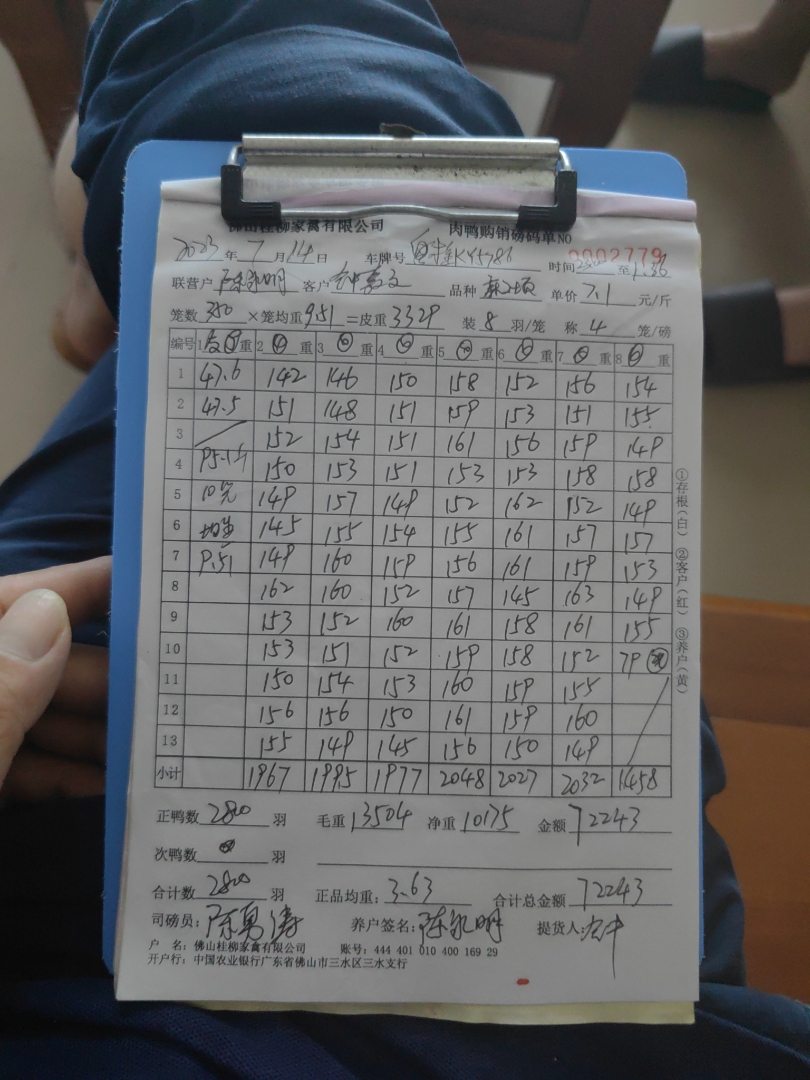 佛山桂柳家禽有限公司 肉鸭购销磅码单NO 0002779
2023年7月14日 车牌号 KY5786 时间 至
联营户 陈永明 客户 品种 单价 7.1 元/斤
笼数 350 ×笼均重 9.51 =皮重 3329 装 8 羽/笼 称 4 笼/磅
编号 1 重 2 重 3 重 4 重 5 重 6 重 7 重 8 重
1 47.6 142 146 150 158 152 156 154
2 47.5 151 148 151 159 153 151 155
3 152 154 151 161 156 159 149
4 95.1 150 153 151 153 153 158 158
5 149 157 149 152 162 152 149
6 145 155 154 155 161 157 157
7 9.51 149 160 159 156 161 159 153
8 162 160 152 157 145 163 149
9 153 152 160 161 158 161 155
10 153 151 152 159 158 152 79
11 150 154 153 160 159 155
12 156 156 150 161 159 160
13 155 149 145 156 150 149
小计 1967 1995 1977 2048 2027 2032 1458
正鸭数 2800 羽 毛重 13504 净重 10175 金额 72243
次鸭数 羽
合计数 2800 羽 正品均重: 3.63 合计总金额 72243
司磅员: 陈勇涛 养户签名: 陈永明 提货人:
户 名: 佛山桂柳家禽有限公司 账号: 444 401 010 400 169 29
开户行: 中国农业银行广东省佛山市三水区三水支行
①存根(白) ②客户(红) ③养户(黄)